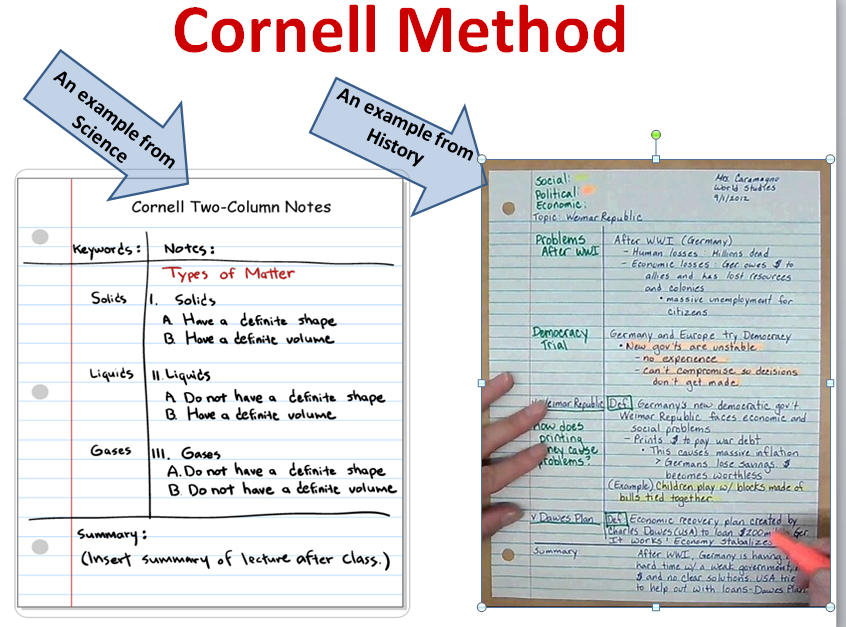 Cornell Method
An example from
Science
An example from
History
Cornell Two-Column Notes
Keywords: Notes:
Types of Matter
Solids I. Solids
A. Have a definite shape
B. Have a definite volume
Liquids II. Liquids
A. Do not have a definite shape
B. Have a definite volume
Gases III. Gases
A. Do not have a definite shape
B. Do not have a definite volume
Summary:
(Insert summary of lecture after class.)
Social:
Political:
Economic:
Topic: Weimar Republic
Mrs. Caramagno
World Studies
9/1/2012
Problems
After WWI
After WWI (Germany)
- Human losses: Millions dead
- Economic losses: Ger owes $ to
allies and has lost resources
and colonies
• massive unemployment for
citizens
Democracy
Trial
Germany and Europe try Democracy
• New gov'ts are unstable
- no experience
- can't compromise so decisions
don't get made
Weimar Republic
How does
printing
problems?
Def Germany's new democratic gov't
Weimar Republic faces economic and
social problems
- Prints $ to pay war debt
• This causes massive inflation
> Germans lose savings. $
becomes worthless
(Example) Children play w/ blocks made of
bills tied together.
v Dawes Plan
Def Economic recovery plan created by
Charles Dawes (USA) to loan $200 Ger
It works! Economy stabalizes
Summary
After WWI, Germany is having
hard time w/ a weak government,
$ and no clear solutions. USA
to help out with loans-Dawes Plan